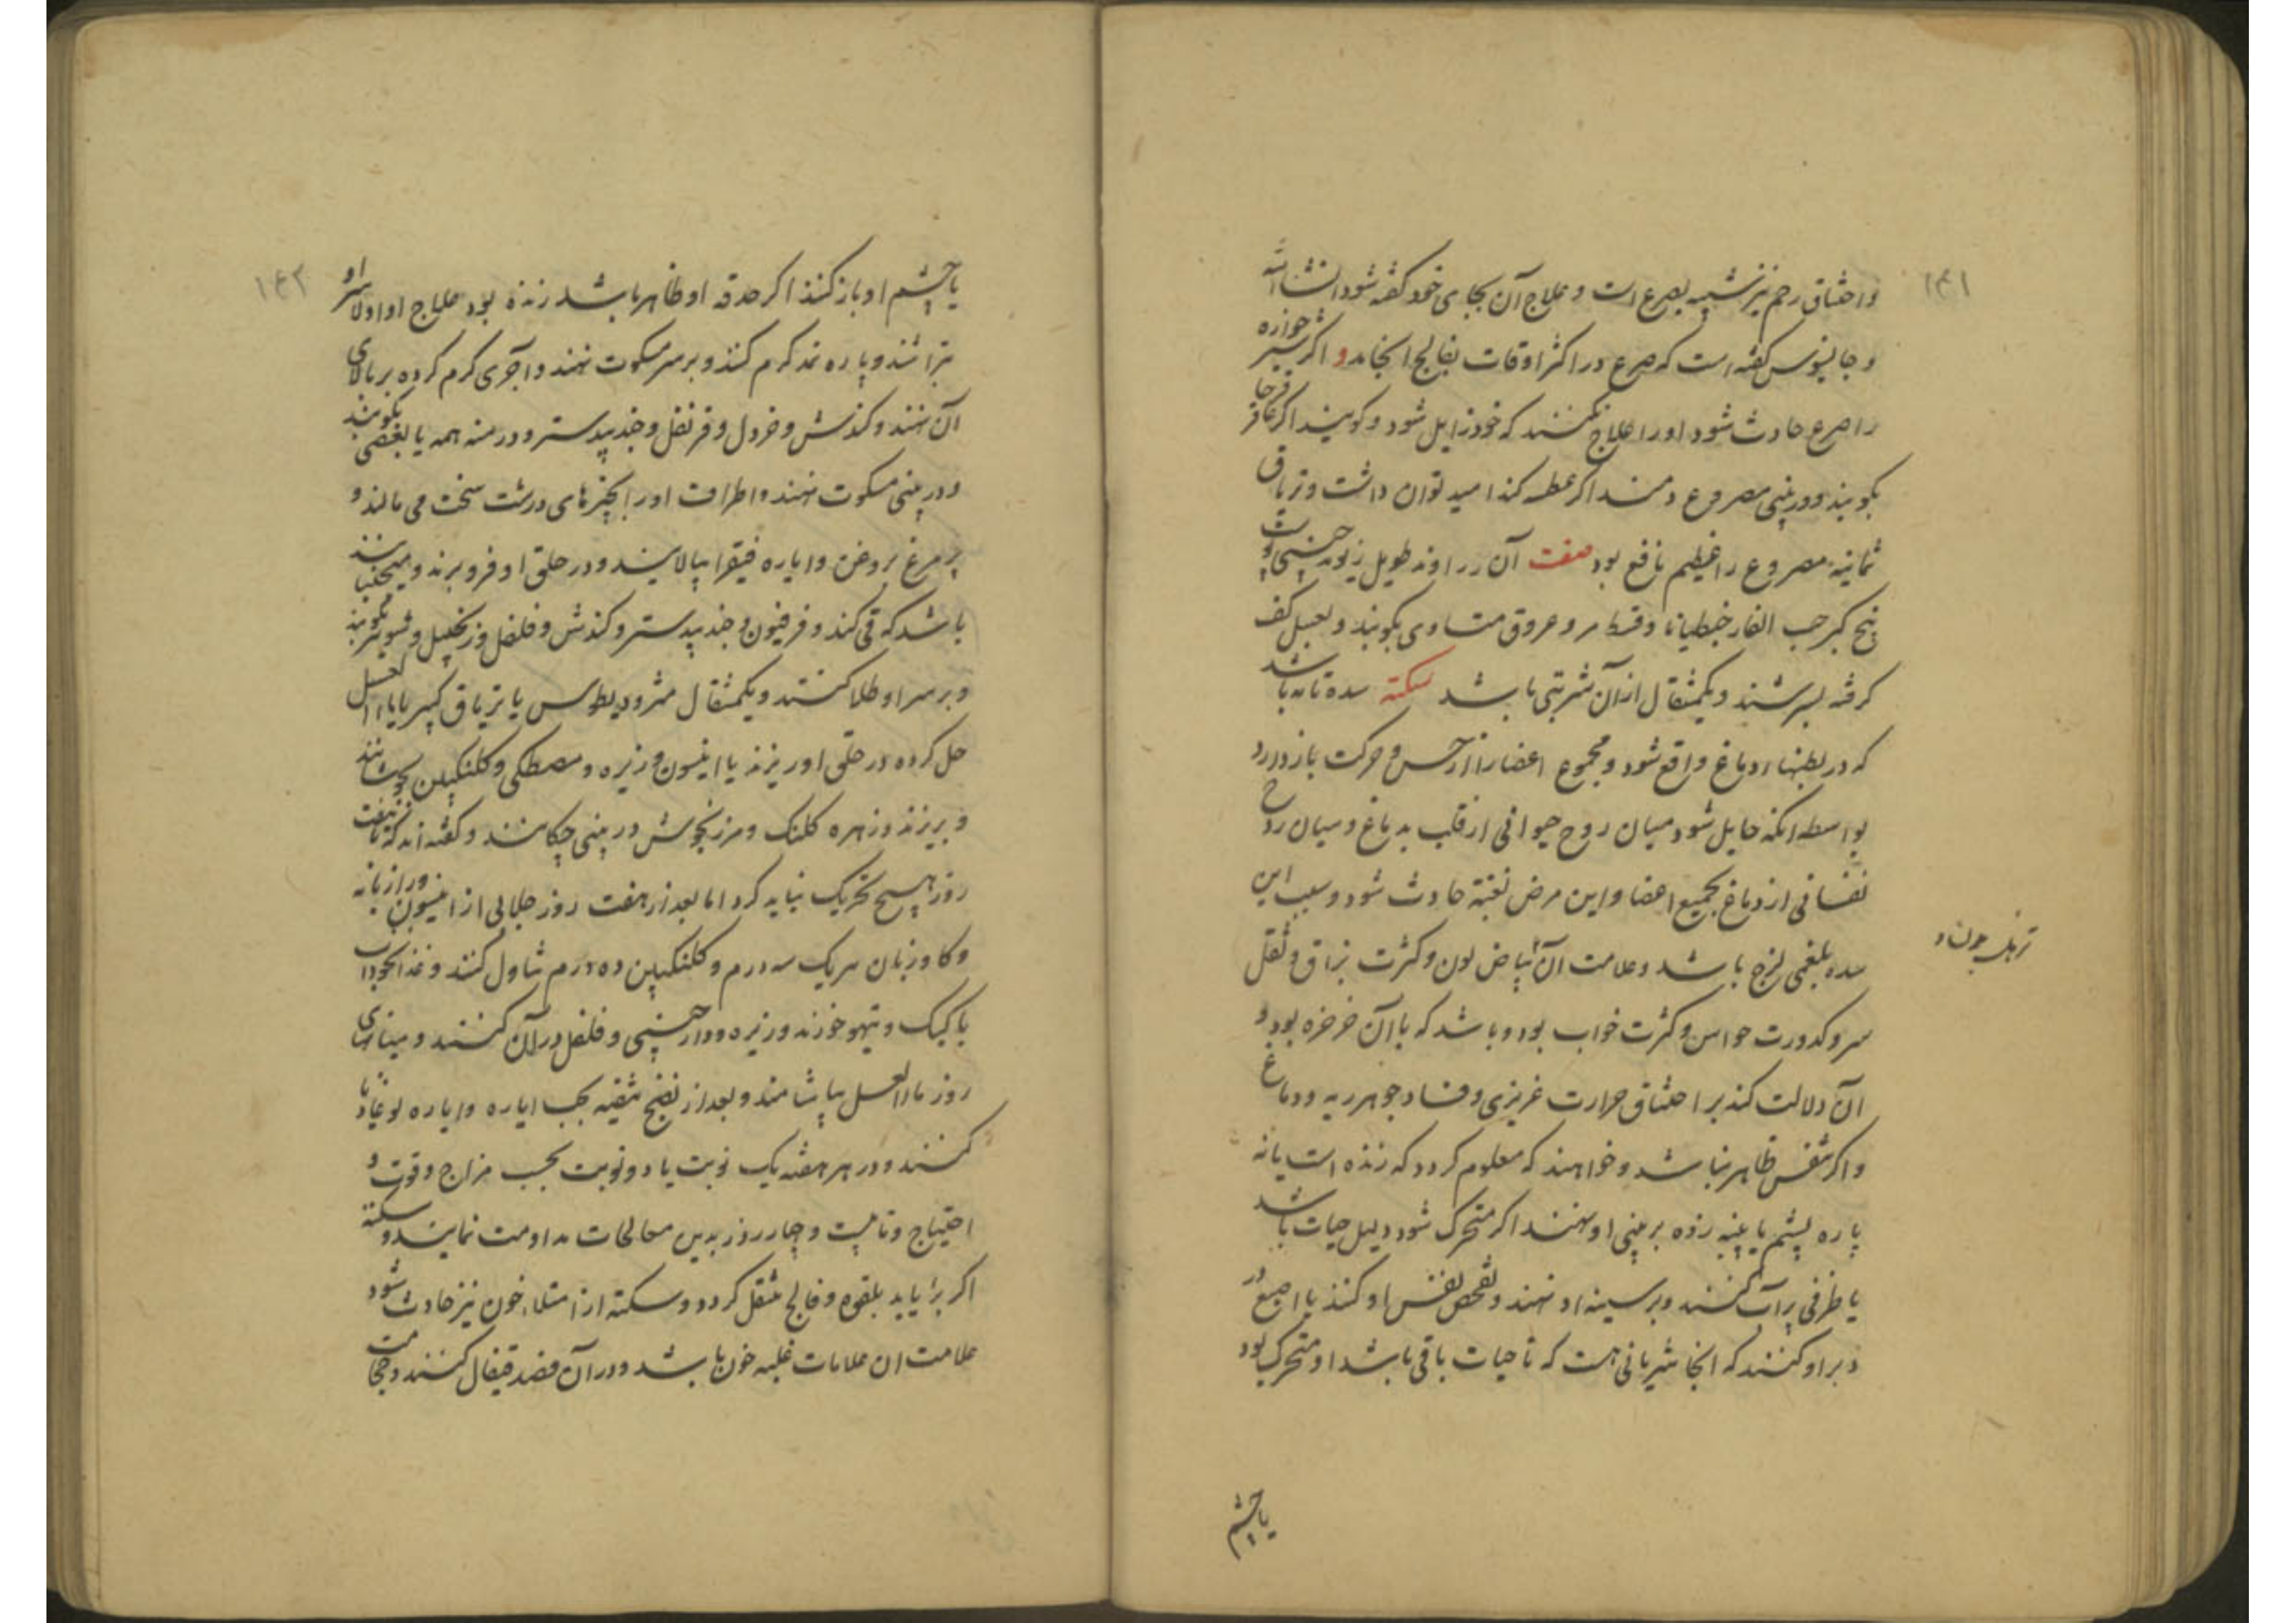 ۱۴۱
واختناق رحم نیز شبیه بصرع است و علاج آن بجای خود گفته شود انشاالله
و جالینوس گفته است که صرع در اکثر اوقات بفالج انجامد و اگر شیر خواره
را صرع حادث شود او را علاج نکنند که خود زایل شود و گویند اگر عاقر قرحا
بکوبند و در بینی مصروع دمند اگر عطسه کند امید توان داشت و تریاق
ثمانیه مصروع را عظیم نافع بود صفت آن زراوند طویل
بیخ کبر حب الغار جنطیانا و قسط مر و عروق متساوی بکوبند و بعسل کف
گرفته بسرشند و یکمثقال از آن شربتی باشد سکته سده تامه باشد
که در بطنهاء دماغ واقع شود و مجموع اعضا را از حس و حرکت باز دارد
بواسطه انکه حایل شود میان روح حیوانی از قلب بدماغ و میان روح
نفسانی از دماغ بجمیع اعضا و این مرض بغتة حادث شود و سبب این
سده بلغمی لزج باشد و علامت آن بیاض لون و کثرت بزاق و ثقل
سر و کدورت حواس و کثرت خواب بود و باشد که با آن خرخره بود و
آن دلالت کند بر اختناق حرارت غریزی و فساد جوهر ریه و دماغ
و اگر تنفس ظاهر نباشد و خواهند که معلوم گردد که زنده است یا نه
پاره پشم یا پنبه زده بر بینی او نهند اگر متحرک شود دلیل حیات باشد
یا ظرفی پر آب کنند و بر سینه او نهند و تفحص نفس او کنند یا اصبع در
دبر او کنند که انجا شریانی هست که تا حیات باقی باشد او متحرک بود
یا چشم
۱۴۲
یا چشم او باز کنند اگر حدقه او ظاهر باشد زنده بود علاج او اولا سر او
بتراشند و پاره نمد گرم کنند و بر سر مسکوت نهند و آجری گرم کرده بر بالای
آن نهند و کندش و خردل و قرنفل و جندبیدستر و درمنه همه یا بعضی بکوبند
و در بینی مسکوت نهند و اطراف او را بچیزهای درشت سخت می مالند و
پر مرغ بروغن و ایاره فیقرا بیالایند و در حلق او فرو برند و میجنبانند
باشد که قی کند و فرفیون و جندبیدستر و کندش و فلفل و زنجبیل و شونیز بکوبند
و بر سر او طلا کنند و یکمثقال مثرودیطوس یا تریاق کبیر با ماء العسل
حل کرده در حلق او ریزند یا انیسون و زیره و مصطکی و گلنگبین بجوشانند
و بریزند و زهره کلنک و مرزنجوش در بینی چکانند و گفته اند که تا هفت
روز هیچ تحریک نباید کرد اما بعد از هفت روز جلابی از انیسون و رازیانه
و گاوزبان هریک سه درم و گلنگبین ده درم تناول کنند و غذا نخوداب
با کبک و تیهو خورند و زیره و دارچینی و فلفل در آن کنند و میانهای
روز ماء العسل بیاشامند و بعد از نضج تنقیه بحب ایاره و ایاره لوغاذیا
کنند و در هر هفته یک نوبت یا دو نوبت بحسب مزاج و قوت و
احتیاج و تا بیست و چهار روز بدین معالجات مداومت نمایند و سکته
اگر بر آید بلقوه و فالج منتقل گردد و سکته از امتلاء خون نیز حادث شود
علامت ان علامات غلبه خون باشد و در آن فصد قیفال کنند و حجامت